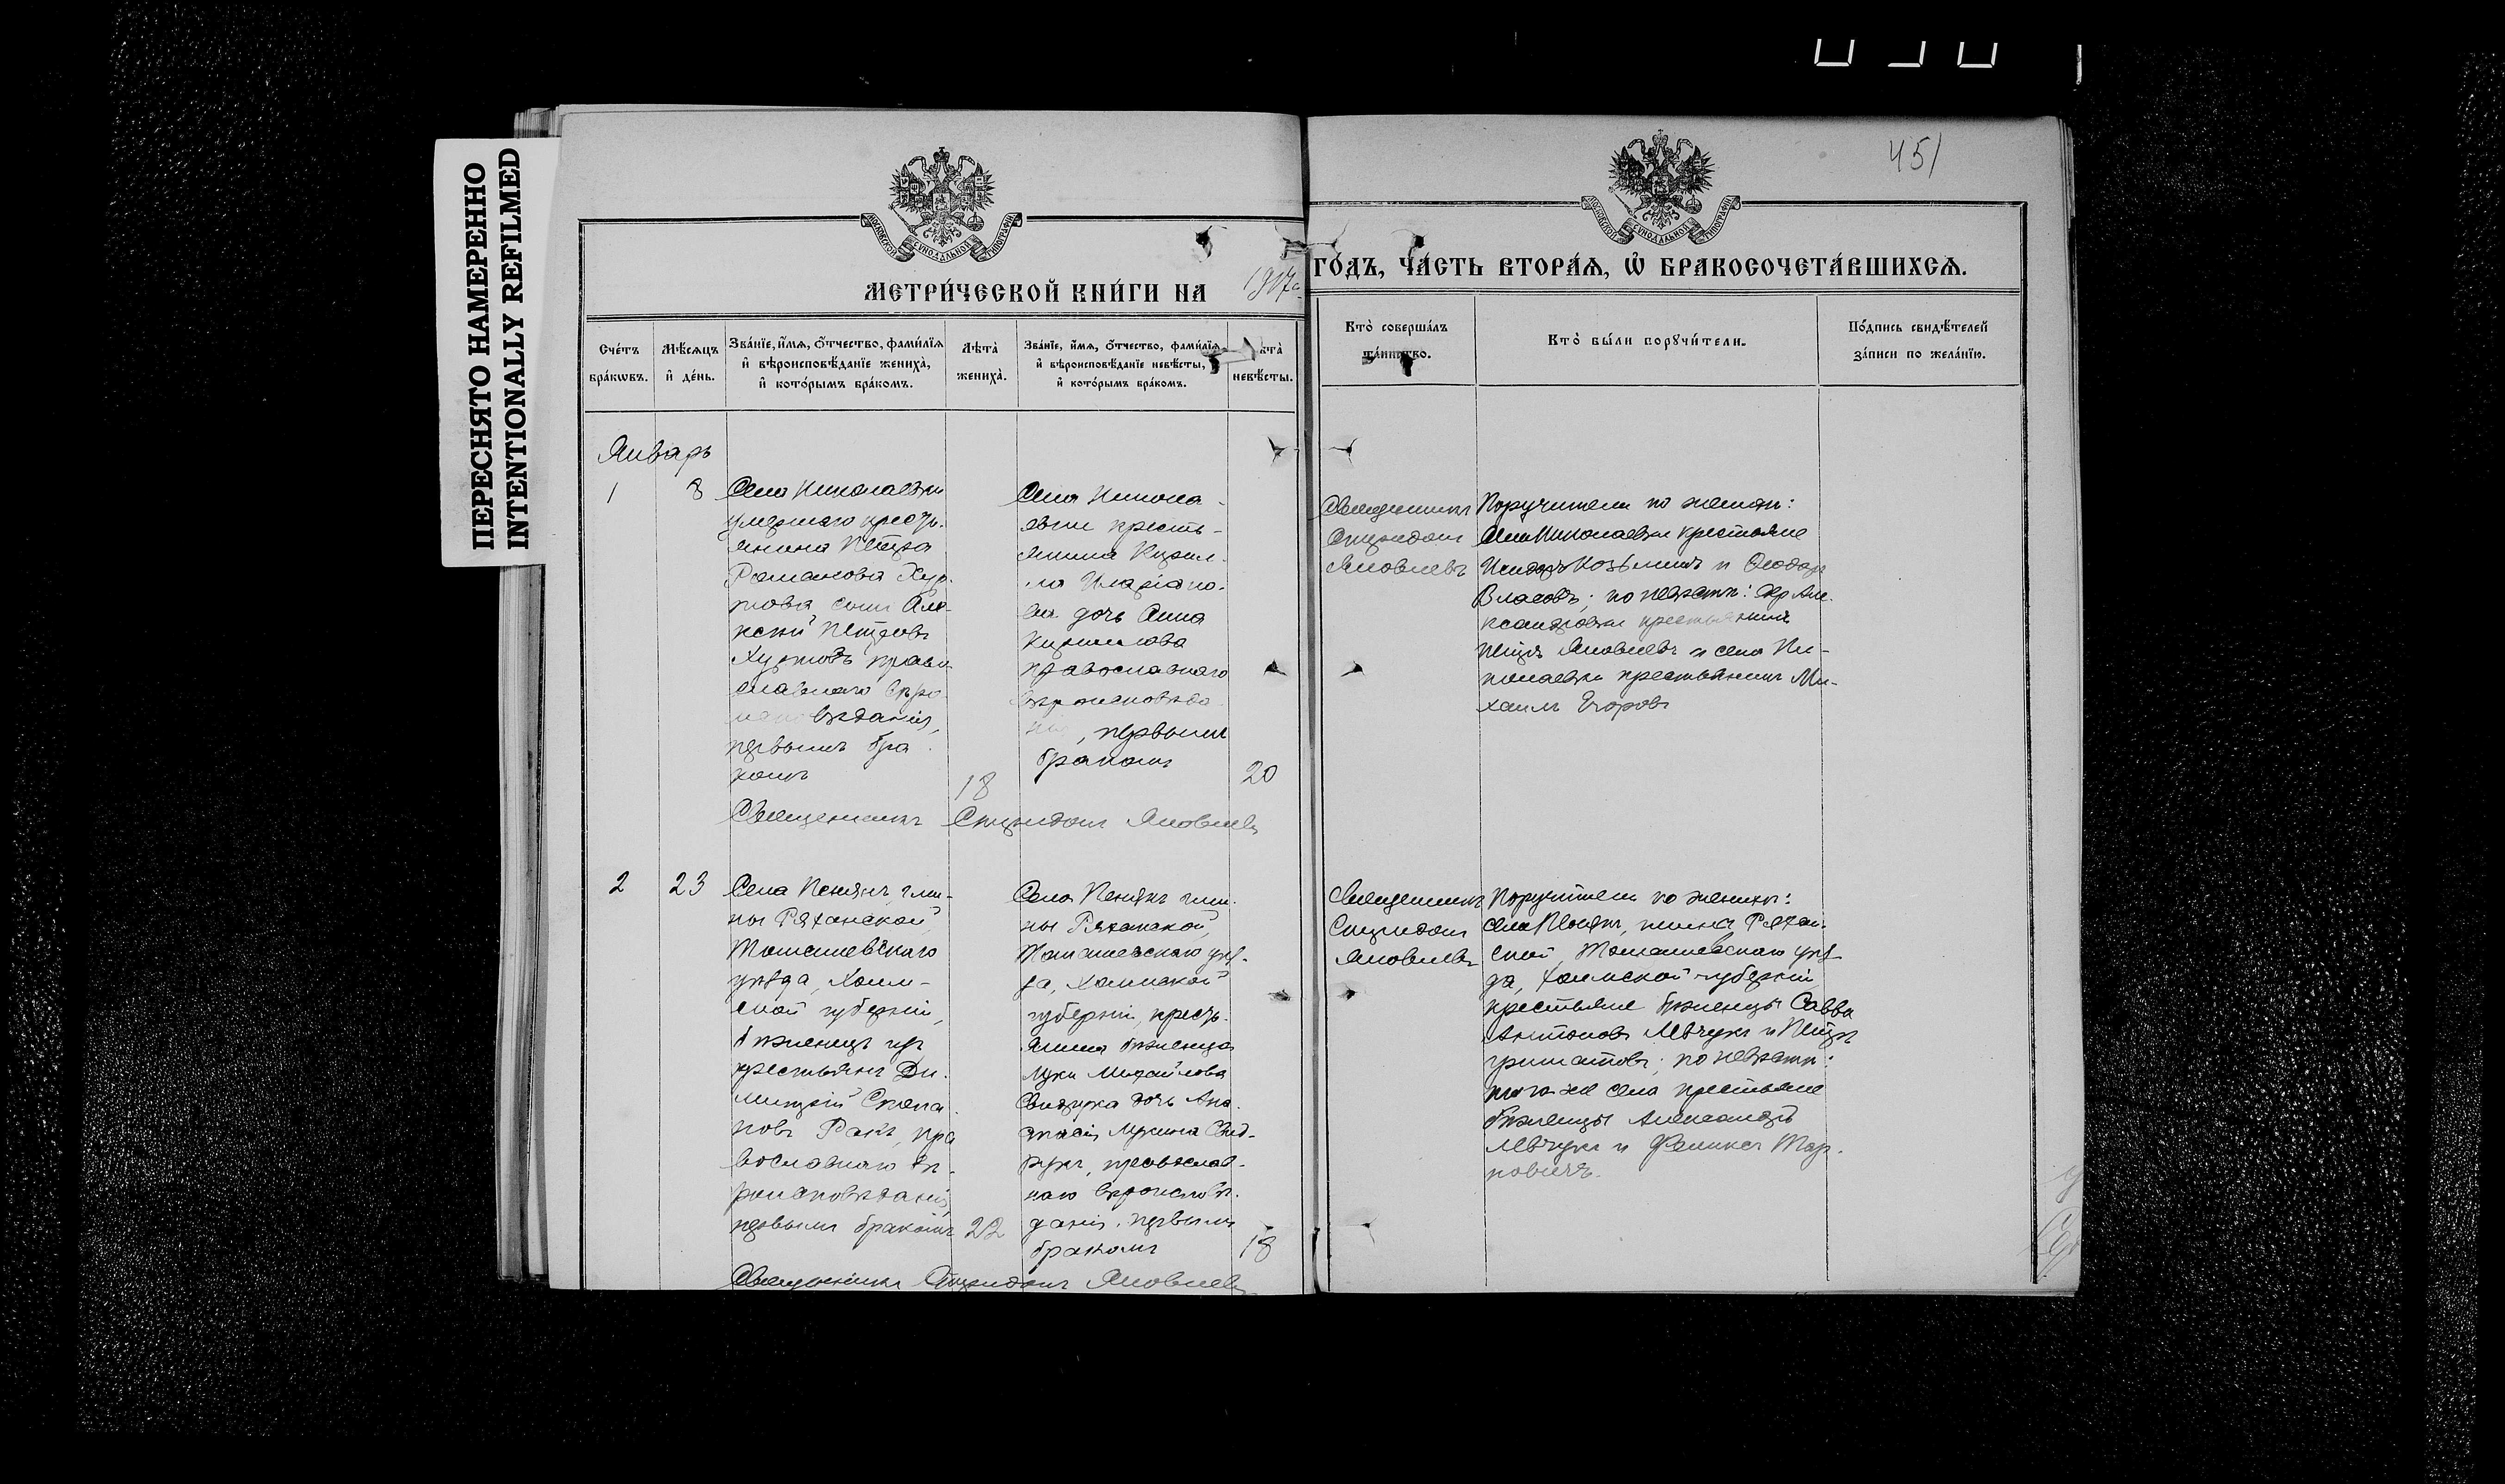 ПЕРЕСНЯТО НАМЕРЕННО
INTENTIONALLY REFILMED
МОСКОВСКОЙ СѴНОДАЛЬНОЙ ТИПОГРАФІИ
МОСКОВСКОЙ СѴНОДАЛЬНОЙ ТИПОГРАФІИ
451
МЕТРИ́ЧЕСКОЙ КНИ́ГИ НА 1917 г. ГО́ДЪ, ЧА́СТЬ ВТОРА́Ѧ, Ѽ БРАКОСОЧЕТА́ВШИХСѦ.
Сче́тъ бра́кѡвъ.
Мѣ́сѧцъ и҆ де́нь.
Зва́нїе, и҆́мѧ, ѻ҆́тчество, фами́лїѧ и҆ вѣроисповѣ́данїе жениха̀, и҆ кото́рымъ бра́комъ.
Лѣ́та̀ жениха̀.
Зва́нїе, и҆́мѧ, ѻ҆́тчество, фами́лїѧ и҆ вѣроисповѣ́данїе невѣ́сты, и҆ кото́рымъ бра́комъ.
невѣ́сты.
Кто̀ соверша́лъ та́инство.
Кто̀ бы́ли порꙋчи́тели.
По́дпись свидѣ́телей за́писи по жела́нїю.
Январь
1
8
Села Николаевки
умершаго кресть-
янина Петра
Романова Хур-
това, сынъ Але-
ксѣй Петровъ
Хуртовъ, право-
славнаго вѣро-
исповѣданія,
первымъ бра-
комъ
18
Села Никола-
евки кресть-
янина Кирил-
ла Иларіоно-
ва дочь Анна
Кириллова
православнаго
вѣроисповѣда-
нія, первымъ
бракомъ
20
Священникъ Спиридонъ Яковлевъ
Священникъ
Спиридонъ
Яковлевъ
Поручители по женихѣ:
Села Николаевки крестьяне
Исидоръ Козьминъ и Ѳеодоръ
Власовъ; по невѣстѣ: дер. Але-
ксандровки крестьянинъ
Петръ Яковлевъ и села Ни-
колаевки крестьянинъ Ми-
хаилъ Егоровъ
2
23
Села Пеняхъ, гми-
ны Ряханской,
Томашевскаго
уѣзда, Холм-
ской губерніи,
бѣженецъ изъ
крестьянъ Ди-
митрій Степа-
новъ Ракъ, пра-
вославнаго вѣ-
роисповѣданія,
первымъ бракомъ
22
Села Пеняхъ гми-
ны Ряханской,
Томашевскаго уѣз-
да, Холмской
губерніи, кресть-
янина бѣженца
Луки Михайлова
дочь Ана-
стасія Лукина
православ-
наго вѣроисповѣ-
данія, первымъ
бракомъ
18
Священникъ Спиридонъ Яковлевъ
Священникъ
Спиридонъ
Яковлевъ
Поручители по женихѣ:
села Пеняхъ, гмины Рахан-
ской, Томашевскаго уѣз-
да, Холмской губерніи
крестьяне бѣженцы Савва
Антоновъ Левчукъ и Петръ
по невѣстѣ:
того же села крестьяне
бѣженцы Александръ
Левчукъ и Феликсъ Кар-
повичъ.